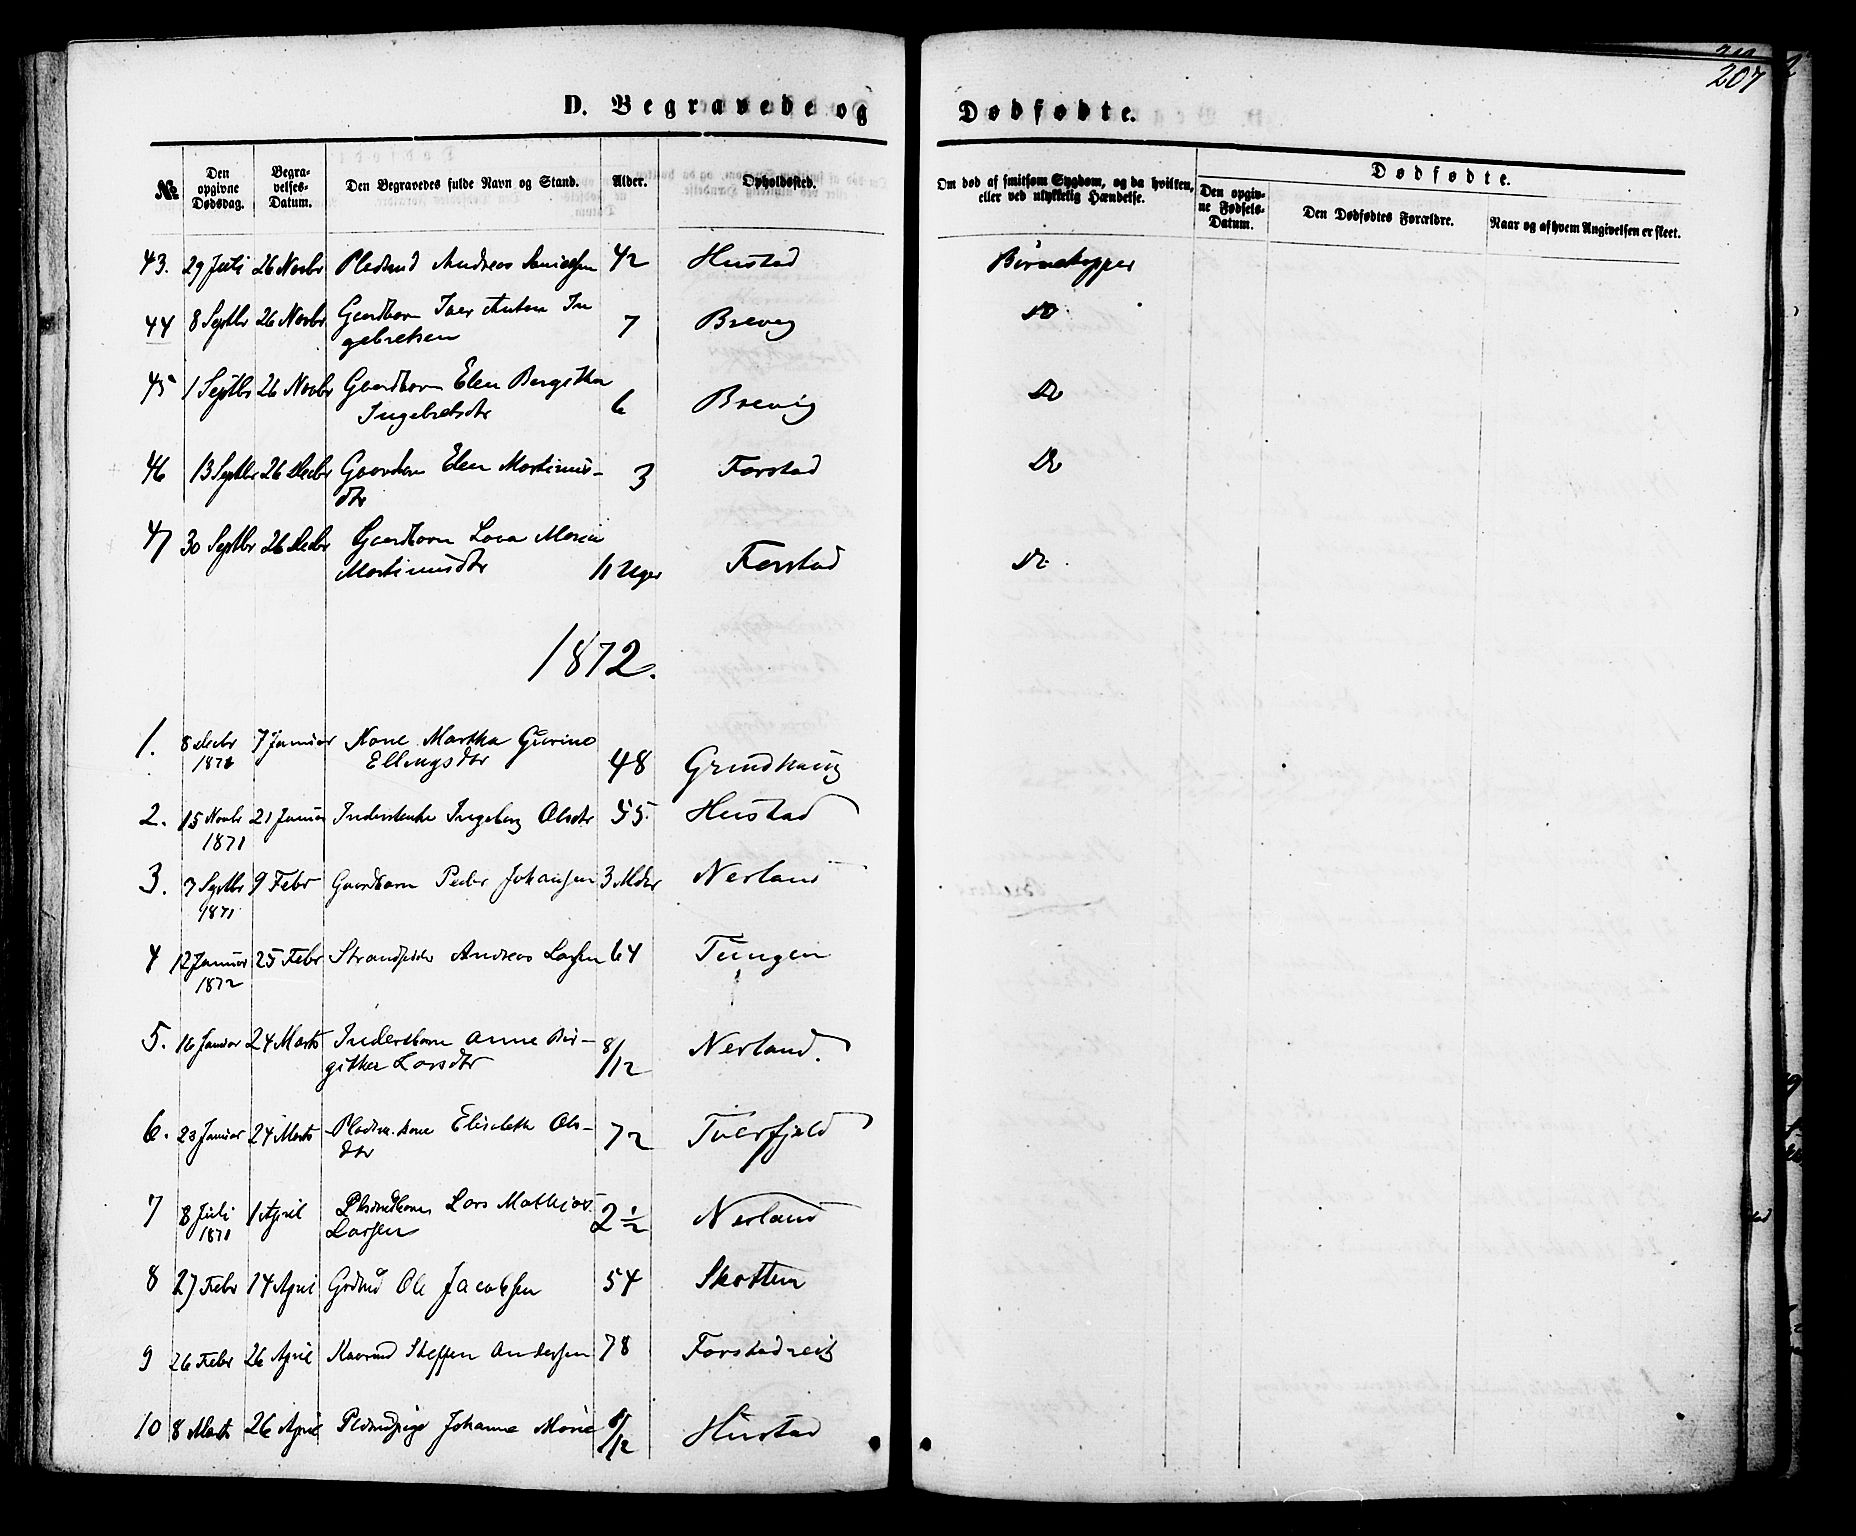 207
D. Begravede og Dødfødte.
№
Den opgivne Dødsdag.
Begravelses-Datum.
Den Begravedes fulde Navn og Stand.
Alder.
Opholdssted.
Om død af smitsom Sygdom, og da hvilken, eller ved ulykkelig Hændelse.
Dødfødte.
Den opgivne Fødsels-Datum.
Den Dødfødtes Forældre.
Naar og af hvem Angivelsen er skeet.
43. 29 Juli 26 Novbr Pladsmd Andreas 42 Hustad Børnekopper
44 8 Septbr 26 Novbr Gaardbarn Iver Anton In
gebretsen 7 Brevig Do
45 1 Septbr 26 Novbr Gaardbarn Elen Bergitha
Ingebretsdtr 6 Brevig Do
46 13 Septbr 26 Decbr Gaardbarn Elen Martinus-
dtr 3 Farstad Do
47 30 Septbr 26 Decbr Gaardbarn Lova Maria
Martinusdtr 11 Uger Farstad Do
1872.
1. 8 Decbr 7 Januar Kone Martha Gurine
1871 Ellingsdtr 48 Grundhaug
2. 15 Novbr 21 Januar Inderstenke Ingeborg Olsdtr 55. Hustad
1871
3. 7 Septbr 9 Febr Gaardbarn Peder Johansen 3 Mdr Nerland
1871
4 12 Januar 25 Febr Strandsidder Andreas Larsen 64 Tungen
1872
5. 16 Januar 24 Marts Inderstbarn Anne Bir-
githa Larsdtr 8/12 Nerland.
6. 23 Januar 24 Marts Pladsm. kone Elisabeth Ols-
dtr 72 Tverfjeld
7 8 Juli 1 April Pladsmdbarn Lars Mathias
1871 Larsen 2 1/2 Nerland
8 27 Febr 14 April Grdmd Ole Jacobsen 54 Skotten
9 26 Febr 26 April Kaarmd Steffen Andersen 78 Farstadreit
10 8 Marts 26 April Pladsmdpige Johanna Marie 8/12 Hustad